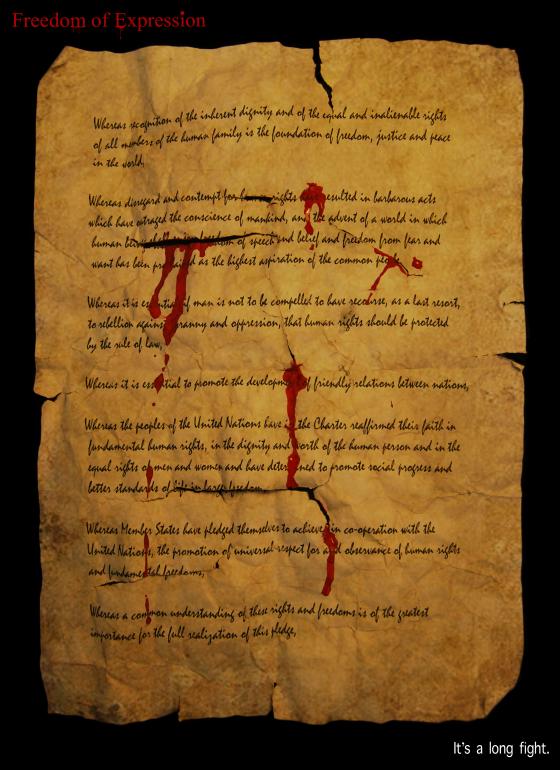 Freedom of Expression
Whereas recognition of the inherent dignity and of the equal and inalienable rights
of all members of the human family is the foundation of freedom, justice and peace
in the world,
Whereas disregard and contempt for human rights have resulted in barbarous acts
which have outraged the conscience of mankind, and the advent of a world in which
human beings shall enjoy freedom of speech and belief and freedom from fear and
want has been proclaimed as the highest aspiration of the common people,
Whereas it is essential, if man is not to be compelled to have recourse, as a last resort,
to rebellion against tyranny and oppression, that human rights should be protected
by the rule of law,
Whereas it is essential to promote the development of friendly relations between nations,
Whereas the peoples of the United Nations have in the Charter reaffirmed their faith in
fundamental human rights, in the dignity and worth of the human person and in the
equal rights of men and women and have determined to promote social progress and
better standards of life in larger freedom,
Whereas Member States have pledged themselves to achieve, in co-operation with the
United Nations, the promotion of universal respect for and observance of human rights
and fundamental freedoms,
Whereas a common understanding of these rights and freedoms is of the greatest
importance for the full realization of this pledge,
It's a long fight.